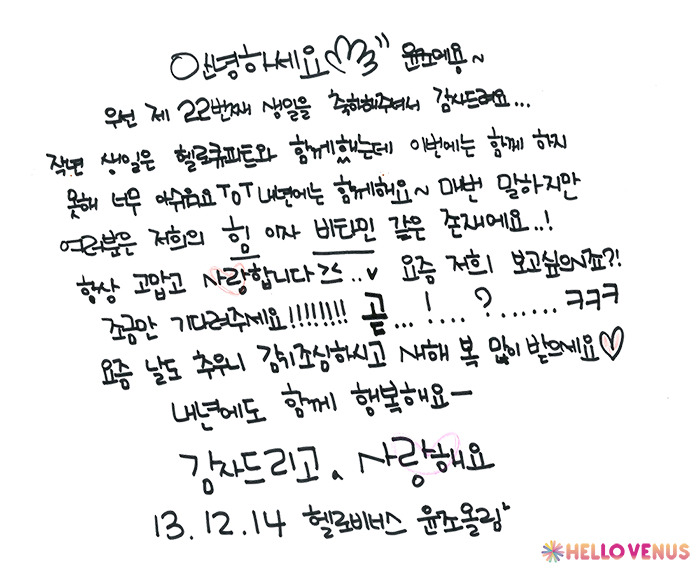 안녕하세요 윤조에용~
우선 제 22번째 생일을 축하해주셔서 감사드려요...
작년 생일은 헬로큐피트와 함께했는데 이번에는 함께 하지
못해 너무 아쉬워요 ToT 내년에는 함께해요~ 매번 말하지만
여러분은 저희의 힘 이자 비타민 같은 존재에요..!
항상 고맙고 사랑합니다 >< ..v 요즘 저희 보고싶으시죠?!
조금만 기다려주세요!!!!!!!! 곧...!....?.......ㅋㅋㅋ
요즘 날도 추우니 감기조심하시고 새해 복 많이 받으세요♡
내년에도 함께 행복해요ー
감사드리고, 사랑해요
13.12.14 헬로비너스 윤조올림
HELLOVENUS